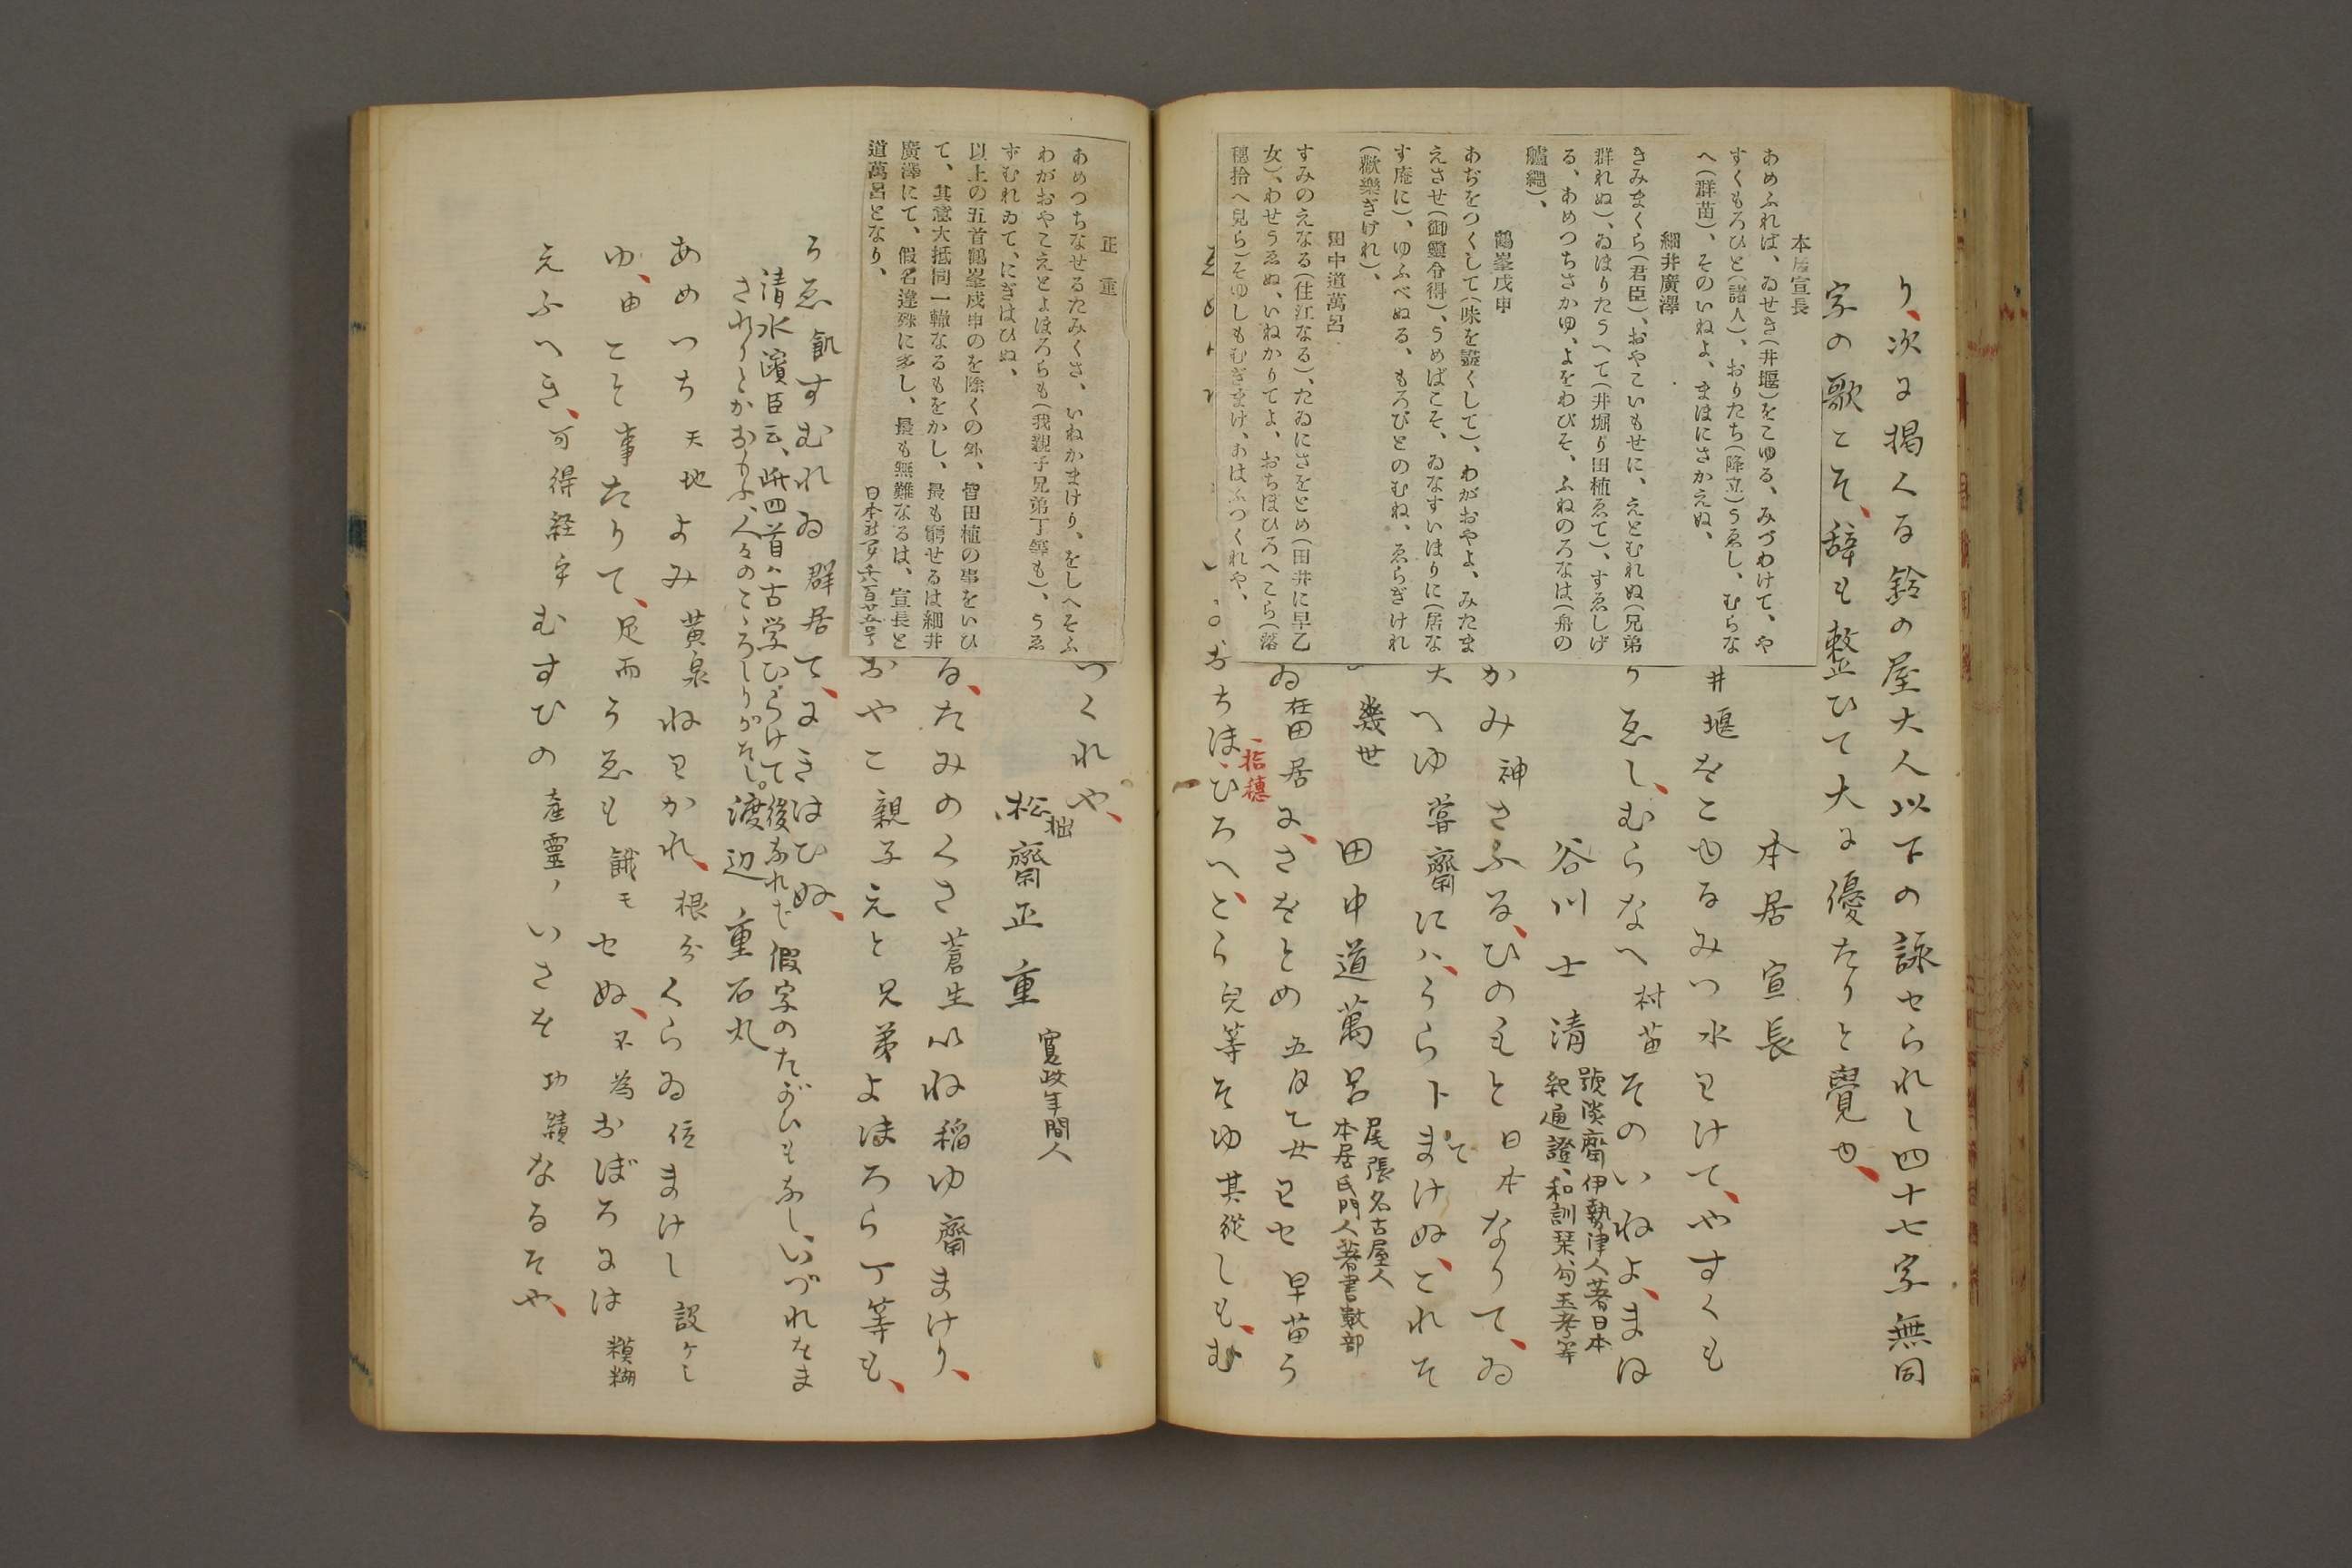 り、次に掲くる鈴の屋大人以下の詠せられし四十七字無同
字の歌こそ、辞も整ひて大に優たりと覺ゆ、
本居宣長
井堰をこゆるみつ水わけて、やすくも
りゑし、むらなへ村苗そのいねよ、まほ
谷川士清
號淡齋伊勢津人著日本
紀通證、和訓栞、勾玉考等
かみ神さふる、ひのもと日本なりて、ゐ
大へゆ嘗齋にハ、うらトまけぬ、これそ
て
幾世
田中道萬呂
尾張名古屋人
本居氏門人著書數部
ゐ在田居に、さをとめ五月乙女わせ早苗う
おちほ、ひろへと、ら皃等そゆ其従しも、む
拾穗
本居宣長
あめふれば、ゐせき(井堰)をこゆる、みづわけて、や
すくもろひと(諸人)、おりたち(降立)うゑし、むらな
へ(群苗)、そのいねよ、まほにさかえぬ、
細井廣澤
きみまくら(君臣)、おやこいもせに、えとむれぬ(兄弟
群れぬ)、ゐほりたうへて(井堀り田植ゑて)、すゑしげ
る、あめつちさかゆ、よをわびそ、ふねのろなは(舟の
艫繩)、
鶴峯戊申
あぢをつくして(味を盡くして)、わがおやよ、みたま
えさせ(御靈令得)、うめばこそ、ゐなすいほりに(居な
す庵に)、ゆふべぬる、もろびとのむね、ゑらぎけれ
(歡樂ぎけれ)、
田中道萬呂
すみのえなる(住江なる)、たゐにさをとめ(田井に早乙
女)、わせうゑぬ、いねかりてよ、おちぼひろへこら(落
穗拾へ兒ら)そゆしもむぎまけ、あはふつくれや、
つくれや、
松齋正重
寛政年間人
る、たみのくさ蒼生いね稲ゆ齋まけり、
おやこ親子えと兄弟よほろら丁等も、
うゑ飢すむれゐ群居て、にきはひぬ、
清水濱臣云、此四首ハ古学ひらけて後なれど假字のたがひもなし、いづれをま
されりとかおもふ、人々のこゝろしりがたし。
渡辺重石丸
あめつち天地よみ黄泉ねわかれ、根分くらゐ位まけし設ケシ
ゆ、由こそ事たりて、足而うゑも餓モせぬ、不為おぼろには糢糊
えふへき、可得経字むすひの産靈ノいさを功績なるそや、
正重
あめつちなせるたみくさ、いねかまけり、をしへそふ
わがおやこえとよほろらも(我親子兄弟丁等も)、うゑ
ずむれゐて、にぎはひぬ、
以上の五首鶴峯戊申のを除くの外、皆田植の事をいひ
て、其意大抵同一轍なるもをかし、最も窮せるは細井
廣澤にて、假名違殊に多し、最も無難なるは、宣長と
道萬呂となり、